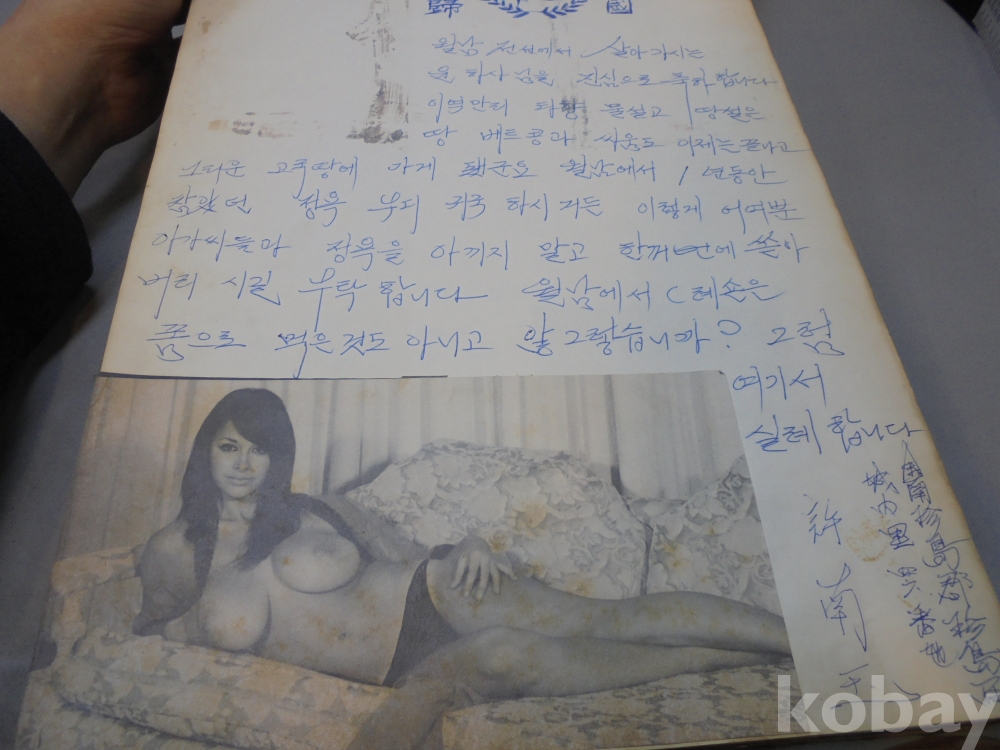 歸 國
월남 전선에서 살아가시는
윤 하사님을 진심으로 축하 합니다
이역만리 타향 물설고 땅설은
땅 베트콩과 싸움도 이제는 끝나고
그리운 고국땅에 가게 됐군요 월남에서 1년동안
참았던 정욕 부디 귀국 하시거든 이렇게 어여쁜
아가씨들마 정욕을 아끼지 말고 한꺼번에 쏟아
버리 시길 부탁 합니다 월남에서 C레숀은
폼으로 먹은것도 아니고 않그렇습니까? 그럼
여기서
실례 합니다
全南珍島郡珍島
城內里 番地
許南
kobay